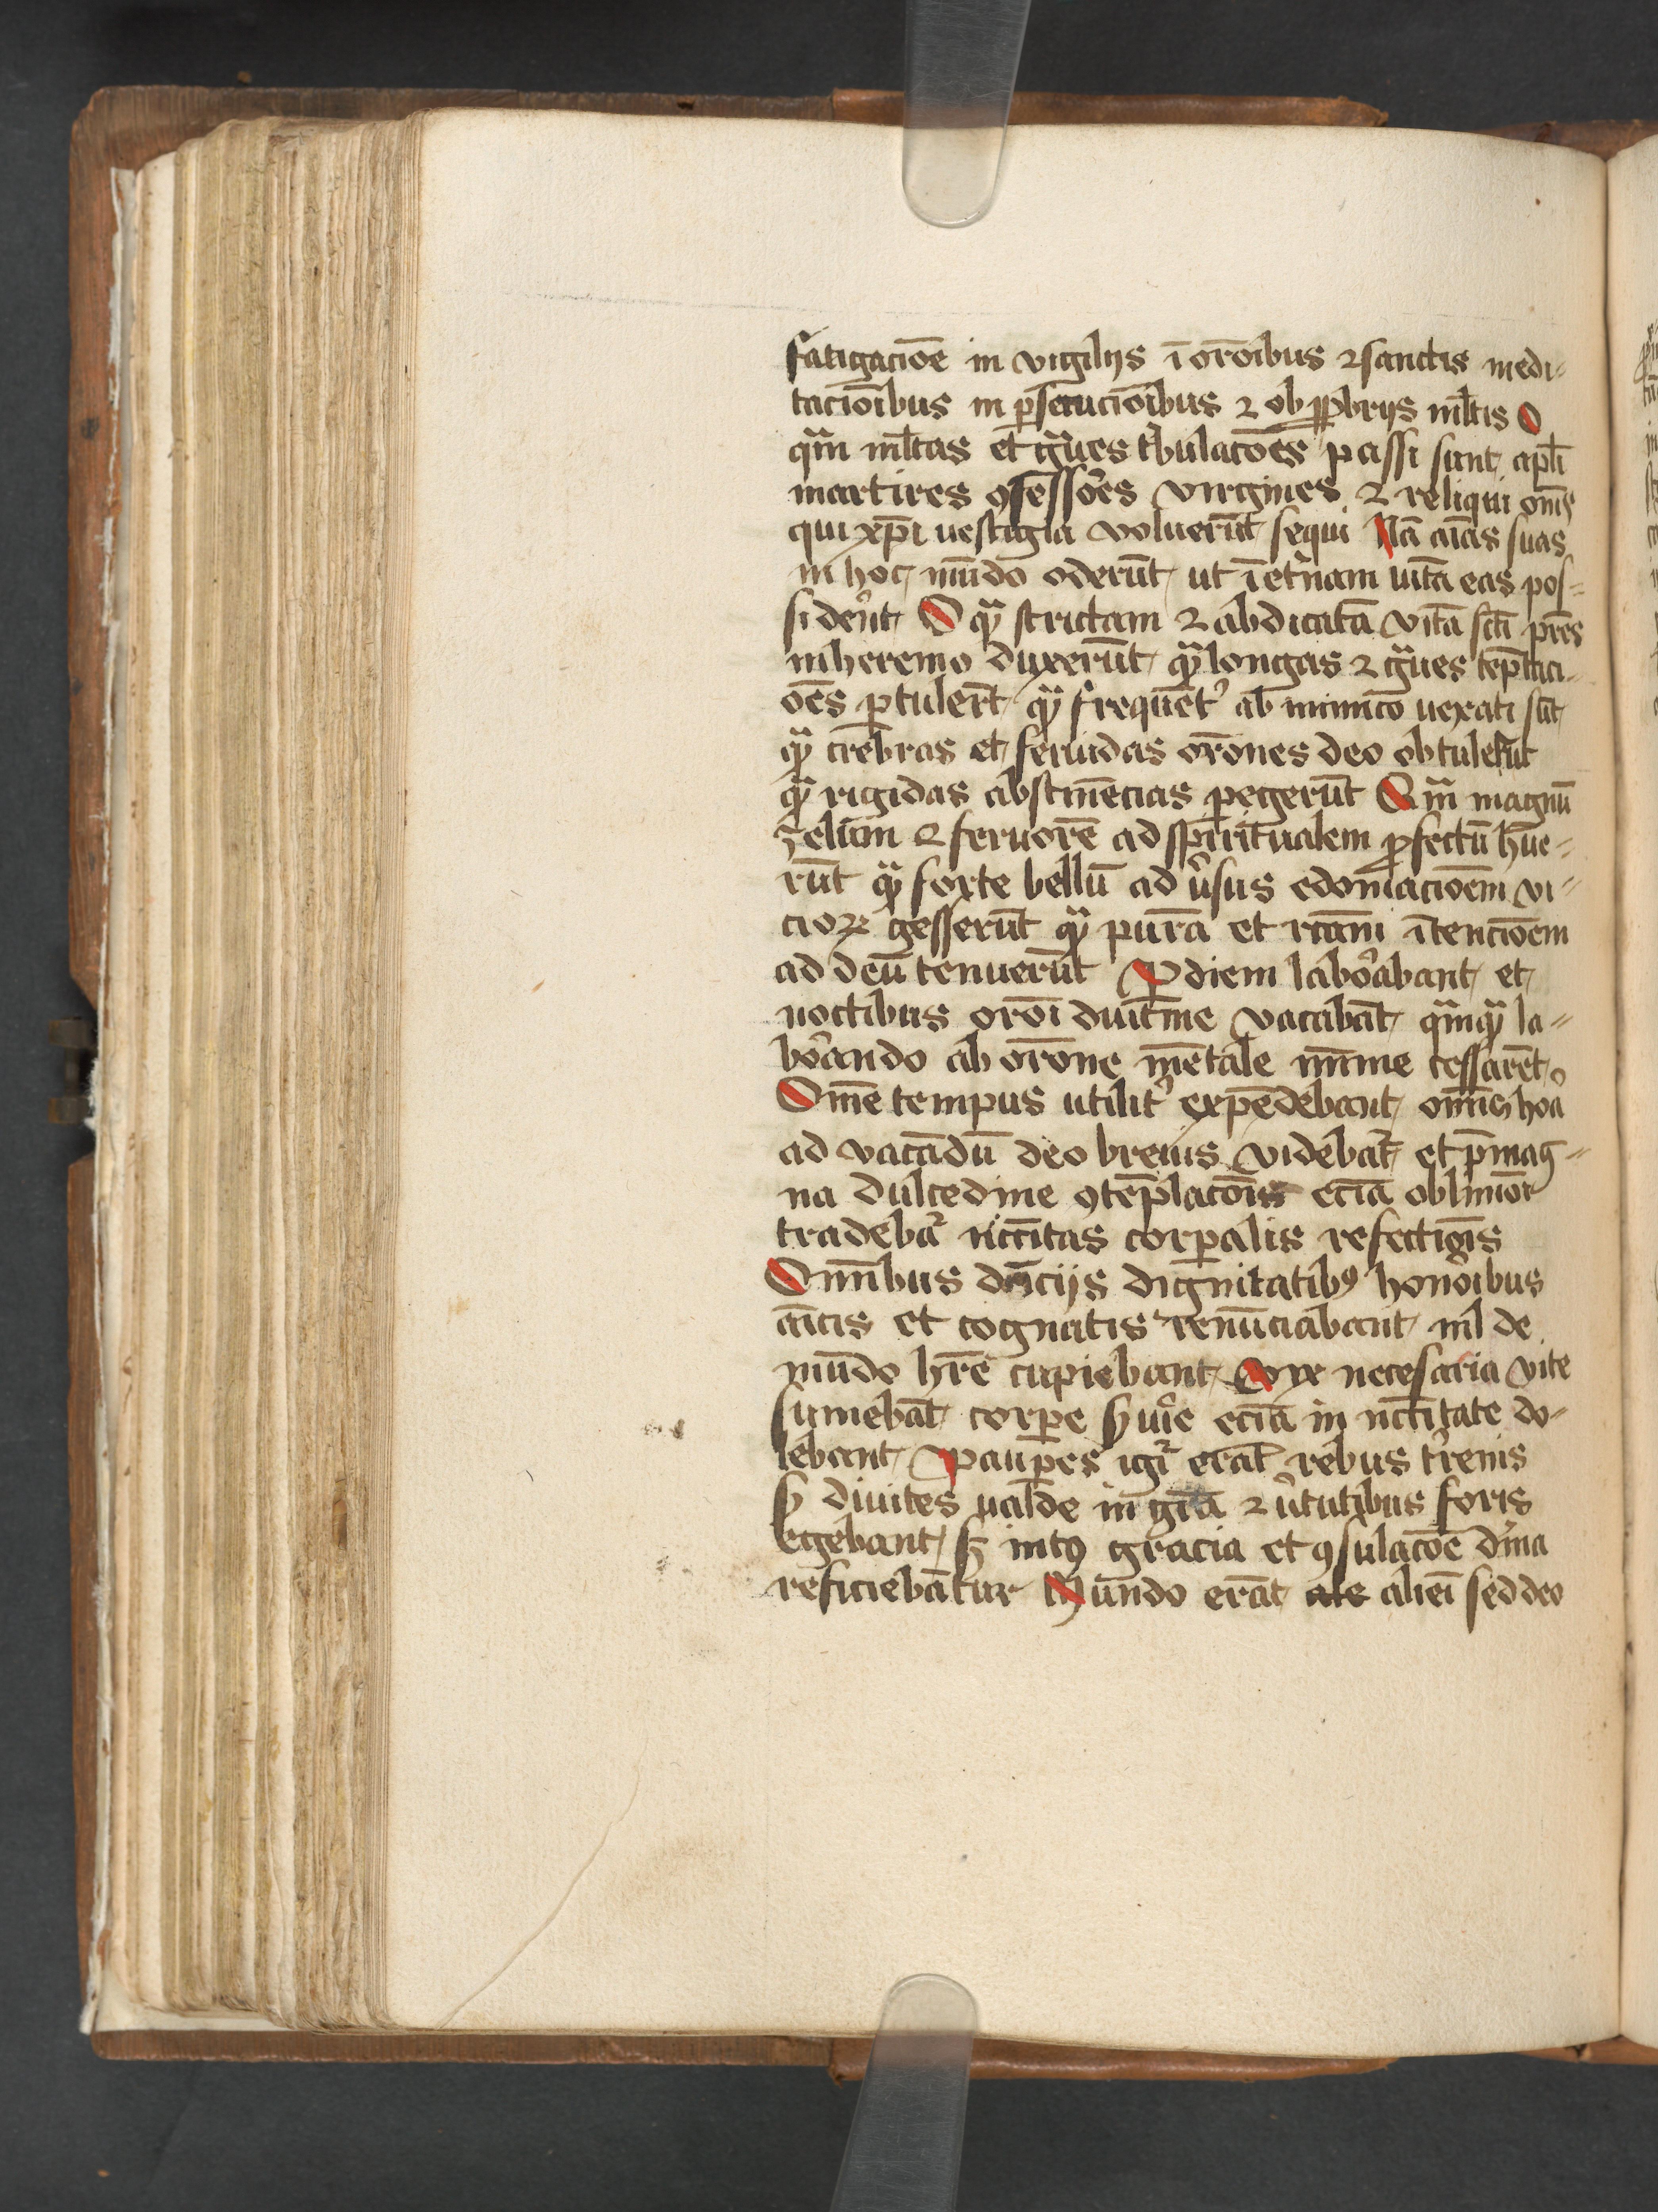 fatigacio̅e in vigilijs i̅ or̅oibus ⁊ sanctis medi⸗
tacio̅ibus in p̲secucio̅ibus ⁊ obꝓbrijs ml̅tis O
qᷓm ml̅tas et gᷓues t̾bulaco̅es passi sunt apl̅i
martires ꝯfessor̾es virgines ⁊ reliqui om̅s
qui xp̅i uestigia voluer̅ut sequi Na̅ ai̅as suas
in hoc mu̅do oderu̅t ut i̅ et̾nam uita̅ eas pos⸗
sider̾ut O qᷓ strictam ⁊ abdicata̅ vita̅ sc̅i pr̅es
in heremo duxeru̅t qᷓ longas ⁊ gᷓues te̅ptaci⸗
o̅es ꝑtuler̅t qᷓ freque̅t̾ ab inimico uexati su̅t
qᷓ crebras et feruidas or̅ones deo obtuleru̅t
qᷓ rigidas abstine̅cias ꝑegeru̅t Qᷓm magnu̅
zelum ⁊ feruore̅ ad spiritualem ꝓfectu̅ h̅ue⸗
ru̅t qᷓ forte bellu̅ ad u̾sus edomacio̅em vi⸗
cioꝝ gesseru̅t qᷓ pura̅ et rc̅am i̅tencio̅em
ad deu̅ tenueru̅t Ꝑ diem labor̾abant et
noctibus or̅oi diuit̅ine vacaba̅t qᷓmqᷓ la⸗
bor̾ando ab or̅one me̅tale mi̅me cessare̅t
Om̅e tempus utilit̾ expe̅debant om̅is hoa̅
ad vaca̅du̅ deo breuis videbat̾ et p̅ mag⸗
na dulcedine ꝯte̅placo̅is ecia̅ obliuio̅i
tradebat̾ nc̅c̅itas corꝑalis refectio̅is
Om̅ibus diu̅cijs dignitatibꝰ honor̾ibus
a̅icis et cognatis renu̅ciabant nl̅ de
mu̅do hr̅e cupiebant vix necesaria vite
sumeba̅t corꝑe ẜuir̾e ecia̅ in nc̅c̅itate do⸗
lebant Pauꝑes igit̾ era̅t rebus t̾renis
ẜ diuites ualde in gr̅a ⁊ u̾tutibus foris
egebant ẜ intꝰ gracia et ꝯsulaco̅e diu̾ina
reficieba̅tur Mu̅ndo era̅t alie̅i sed deo